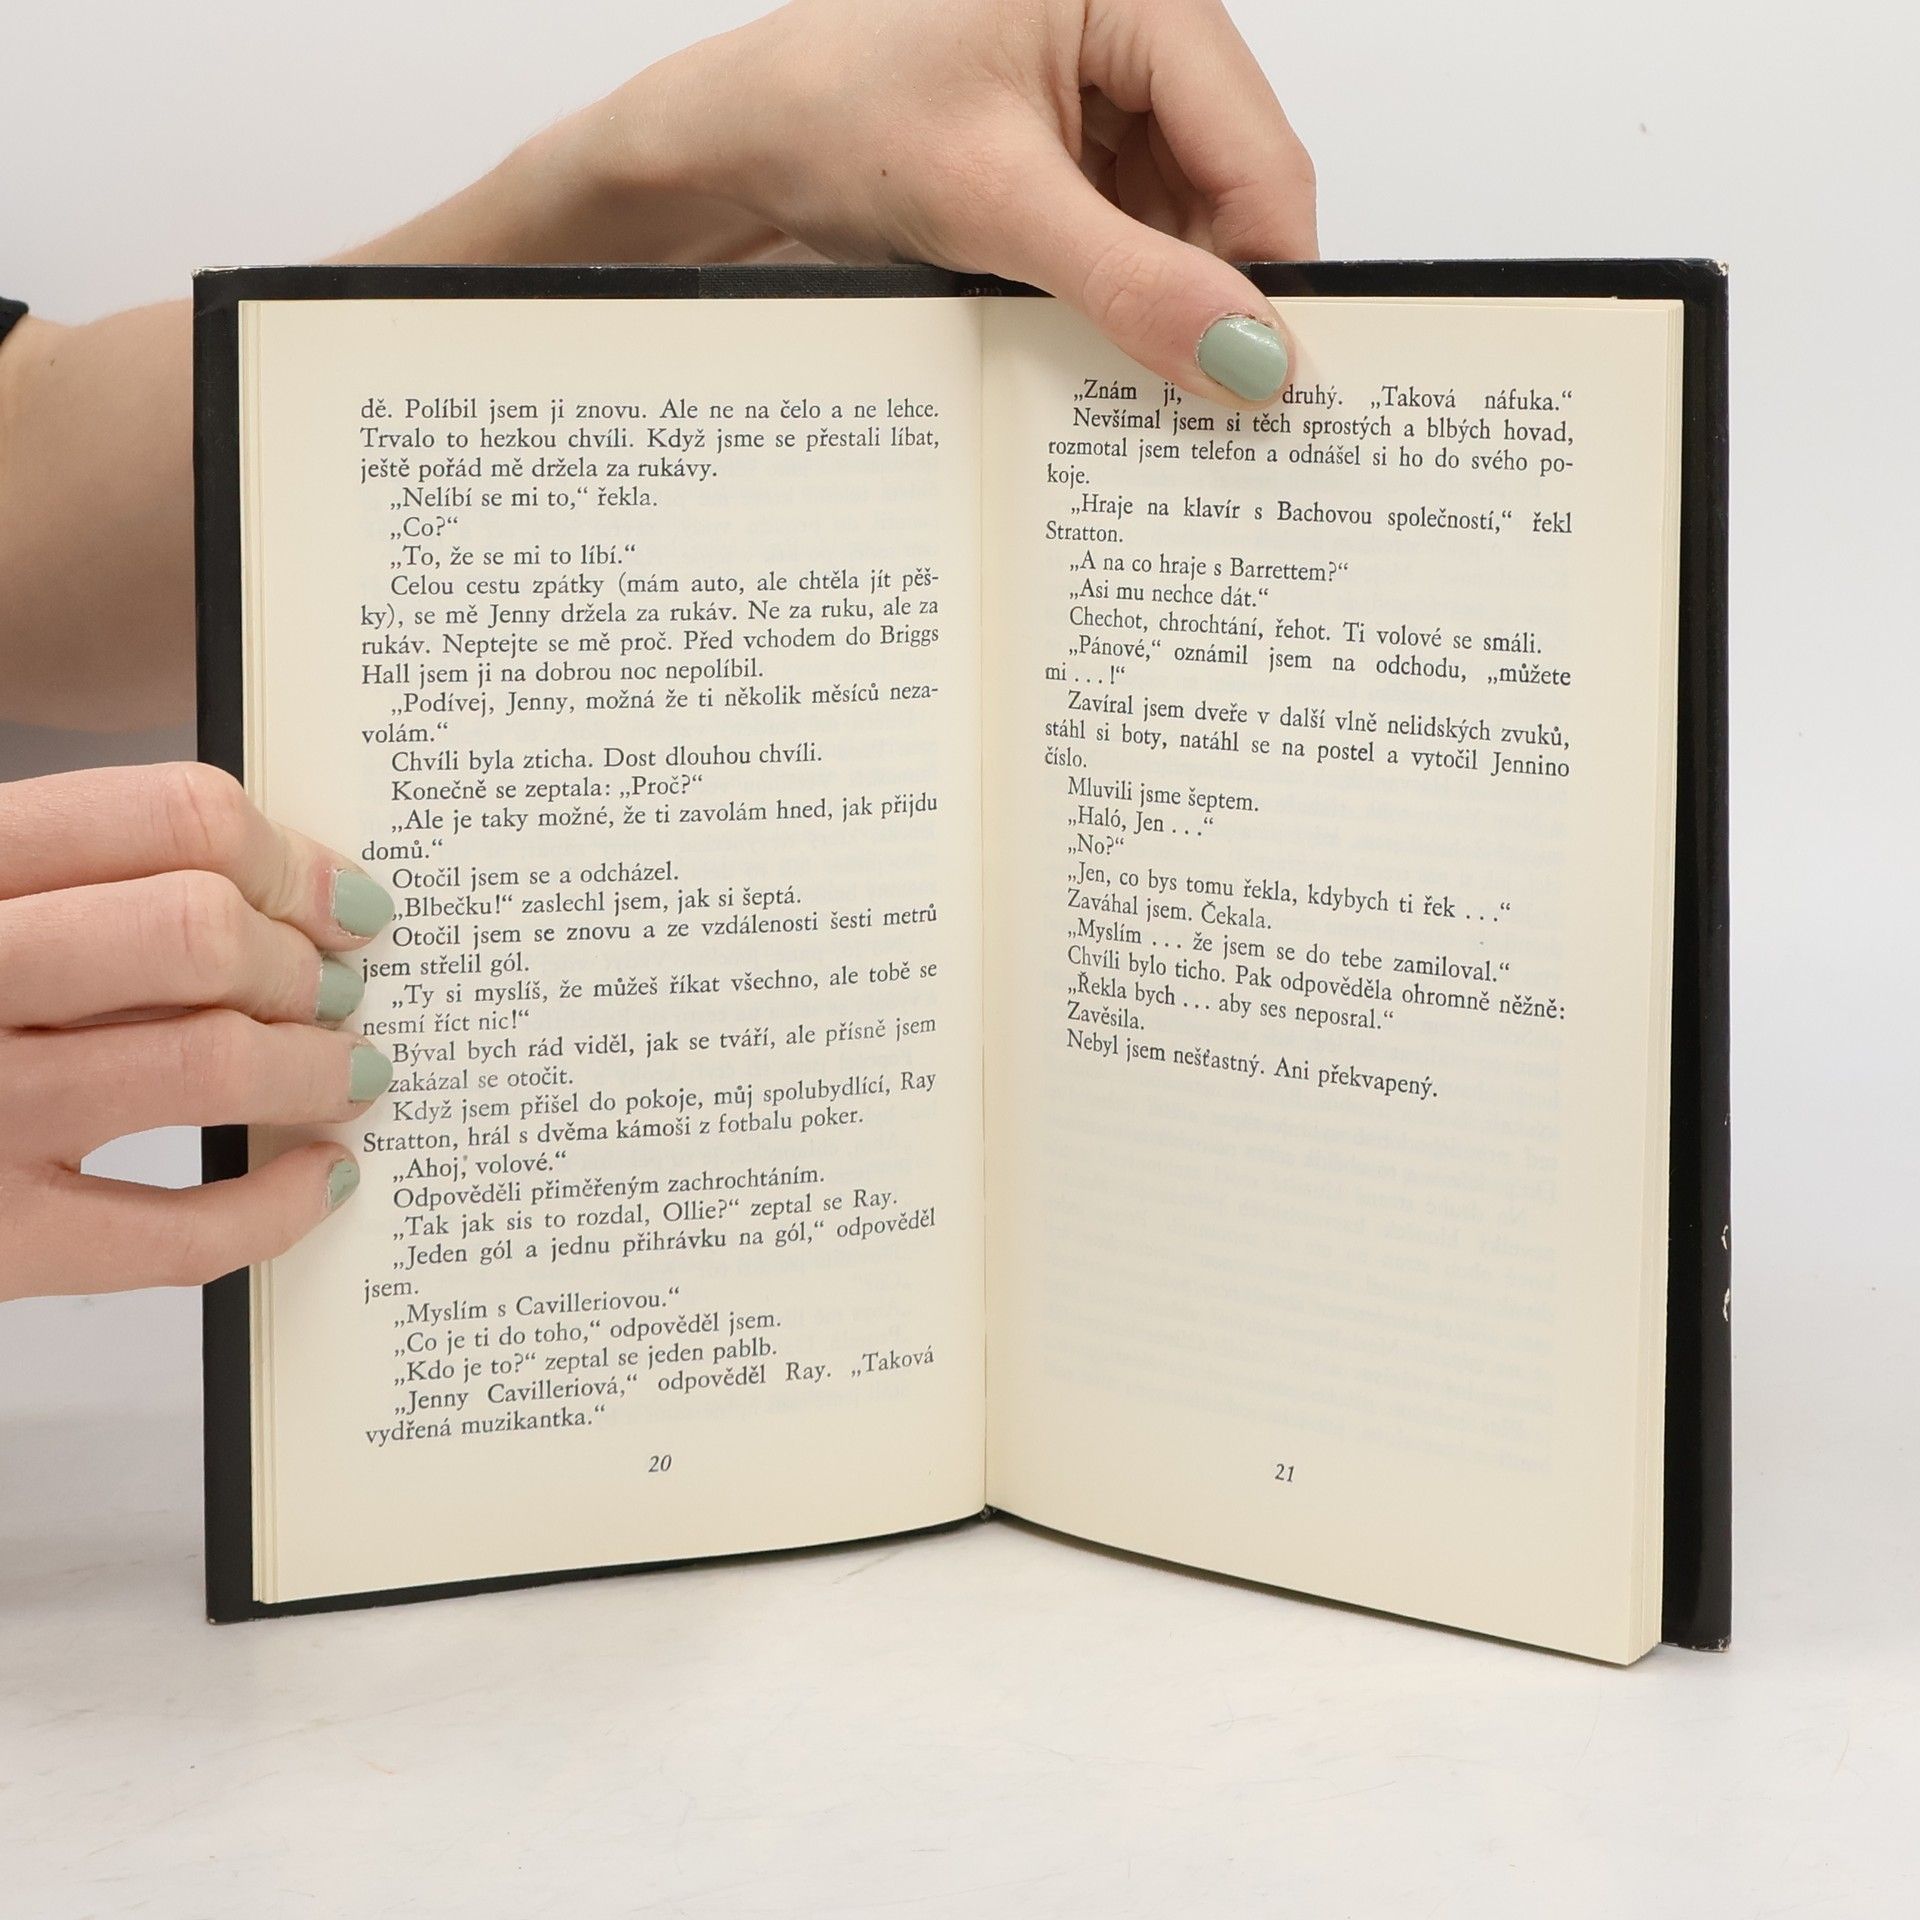 dě. Políbil jsem ji znovu. Ale ne na čelo a ne lehce.
Trvalo to hezkou chvíli. Když jsme se přestali líbat,
ještě pořád mě držela za rukávy.
„Nelíbí se mi to,“ řekla.
„Co?“
„To, že se mi to líbí.“
Celou cestu zpátky (mám auto, ale chtěla jít pěš-
ky), se mě Jenny držela za rukáv. Ne za ruku, ale za
rukáv. Neptejte se mě proč. Před vchodem do Briggs
Hall jsem ji na dobrou noc nepolíbil.
„Podívej, Jenny, možná že ti několik měsíců neza-
volám.“
Chvíli byla zticha. Dost dlouhou chvíli.
Konečně se zeptala: „Proč?“
„Ale je taky možné, že ti zavolám hned, jak přijdu
domů.“
Otočil jsem se a odcházel.
„Blbečku!“ zaslechl jsem, jak si šeptá.
Otočil jsem se znovu a ze vzdálenosti šesti metrů
jsem střelil gól.
„Ty si myslíš, že můžeš říkat všechno, ale tobě se
nesmí říct nic!“
Býval bych rád viděl, jak se tváří, ale přísně jsem
zakázal se otočit.
Když jsem přišel do pokoje, můj spolubydlící, Ray
Stratton, hrál s dvěma kámoši z fotbalu poker.
„Ahoj, volové.“
Odpověděli přiměřeným zachrochtáním.
„Tak jak sis to rozdal, Ollie?“ zeptal se Ray.
„Jeden gól a jednu přihrávku na gól,“ odpověděl
jsem.
„Myslím s Cavilleriovou.“
„Co je ti do toho,“ odpověděl jsem.
„Kdo je to?“ zeptal se jeden pablb.
„Jenny Cavilleriová,“ odpověděl Ray. „Taková
vydřená muzikantka.“
20
„Znám ji, druhý. „Taková náfuka.“
Nevšímal jsem si těch sprostých a blbých hovad,
rozmotal jsem telefon a odnášel si ho do svého po-
koje.
„Hraje na klavír s Bachovou společností,“ řekl
Stratton.
„A na co hraje s Barrettem?“
„Asi mu nechce dát.“
Chechot, chrochtání, řehot. Ti volové se smáli.
„Pánové,“ oznámil jsem na odchodu, „můžete
mi . . . !“
Zavíral jsem dveře v další vlně nelidských zvuků,
stáhl si boty, natáhl se na postel a vytočil Jennino
číslo.
Mluvili jsme šeptem.
„Haló, Jen . . .“
„No?“
„Jen, co bys tomu řekla, kdybych ti řek . . .“
Zaváhal jsem. Čekala.
„Myslím . . . že jsem se do tebe zamiloval.“
Chvíli bylo ticho. Pak odpověděla ohromně něžně:
„Řekla bych . . . aby ses neposral.“
Zavěsila.
Nebyl jsem nešťastný. Ani překvapený.
21